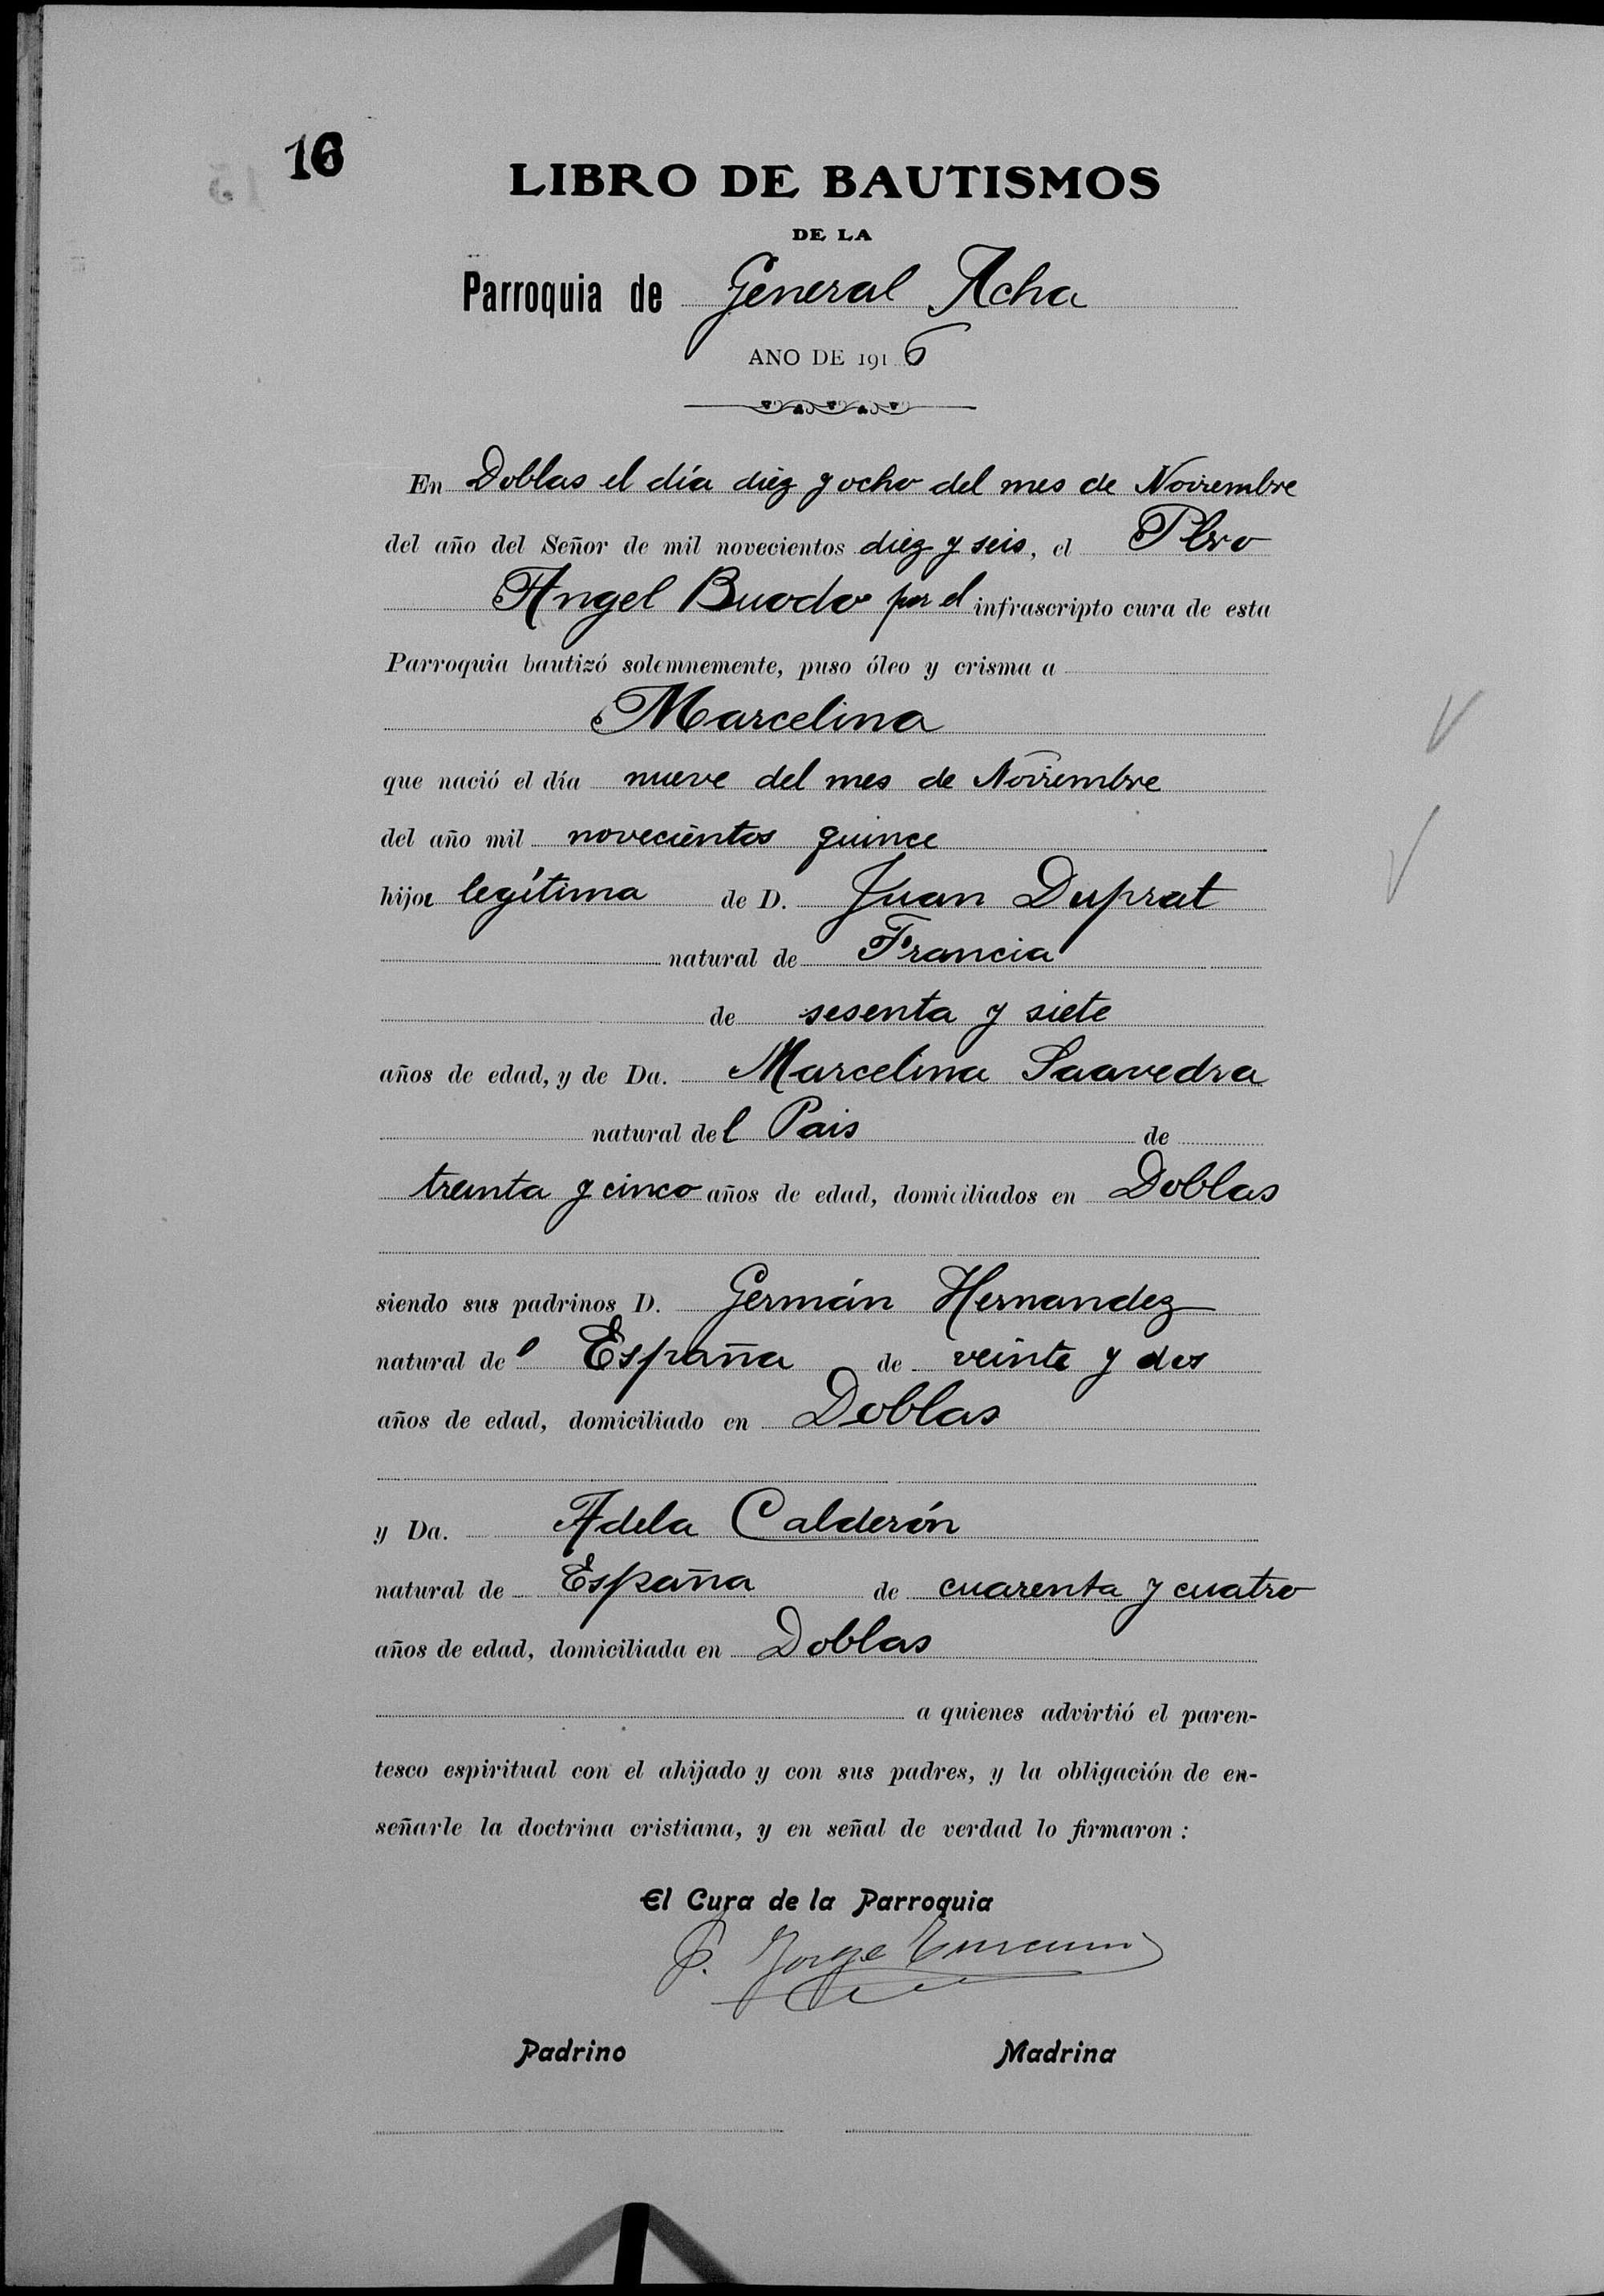 16
LIBRO DE BAUTISMOS
DE LA
Parroquia de General Acha
AÑO DE 1916
En Doblas el día diez y ocho del mes de Noviembre
del año del Señor de mil novecientos diez y seis, el Pbro
Angel Buodo por el infrascripto cura de esta
Parroquia bautizó solemnemente, puso óleo y crisma a
Marcelina
que nació el día nueve del mes de Noviembre
del año mil novecientos quince
hija legítima de D. Juan Duprat
natural de Francia
de sesenta y siete
años de edad, y de Da. Marcelina Saavedra
natural del Pais de
treinta y cinco años de edad, domiciliados en Doblas
siendo sus padrinos D. Germán Hernandez
natural de España de veinte y dos
años de edad, domiciliado en Doblas
y Da. Adela Calderón
natural de España de cuarenta y cuatro
años de edad, domiciliada en Doblas
a quienes advirtió el paren-
tesco espiritual con el ahijado y con sus padres, y la obligación de en-
señarle la doctrina cristiana, y en señal de verdad lo firmaron:
El Cura de la Parroquia
P. Jorge
Padrino Madrina